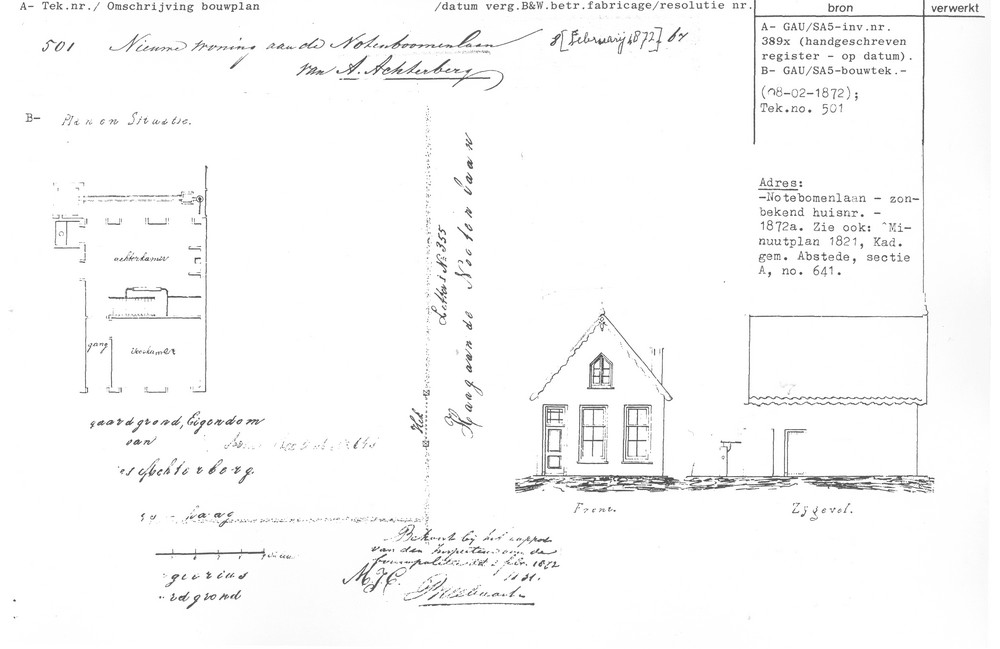 A- Tek.nr./ Omschrijving bouwplan /datum verg.B&W.betr.fabricage/resolutie nr.
bron
verwerkt
501 Nieuwe woning aan de Notenboomenlaan 8[februarij 1872] 67
van A. Achterberg
A- GAU/SA5-inv.nr.
389x (handgeschreven
register - op datum).
B- GAU/SA5-bouwtek.-
(08-02-1872);
Tek.no. 501
B- Plan en Situatie.
Adres:
-Notebomenlaan - zon-
bekend huisnr. -
1872a. Zie ook: "Mi-
nuutplan 1821, Kad.
gem. Abstede, sectie
A, no. 641.
achterkamer
gang
voorkamer
Letter i No 355
Haag aan de Nooten laan
Hek
aardgrond, Eigendom
van
es Achterberg.
haag
Front.
Zijgevel.
Behoort bij het rapport
van den Inspecteur van de
bouwpolitie dd 3 febr. 1872
No 31.
rdgrond